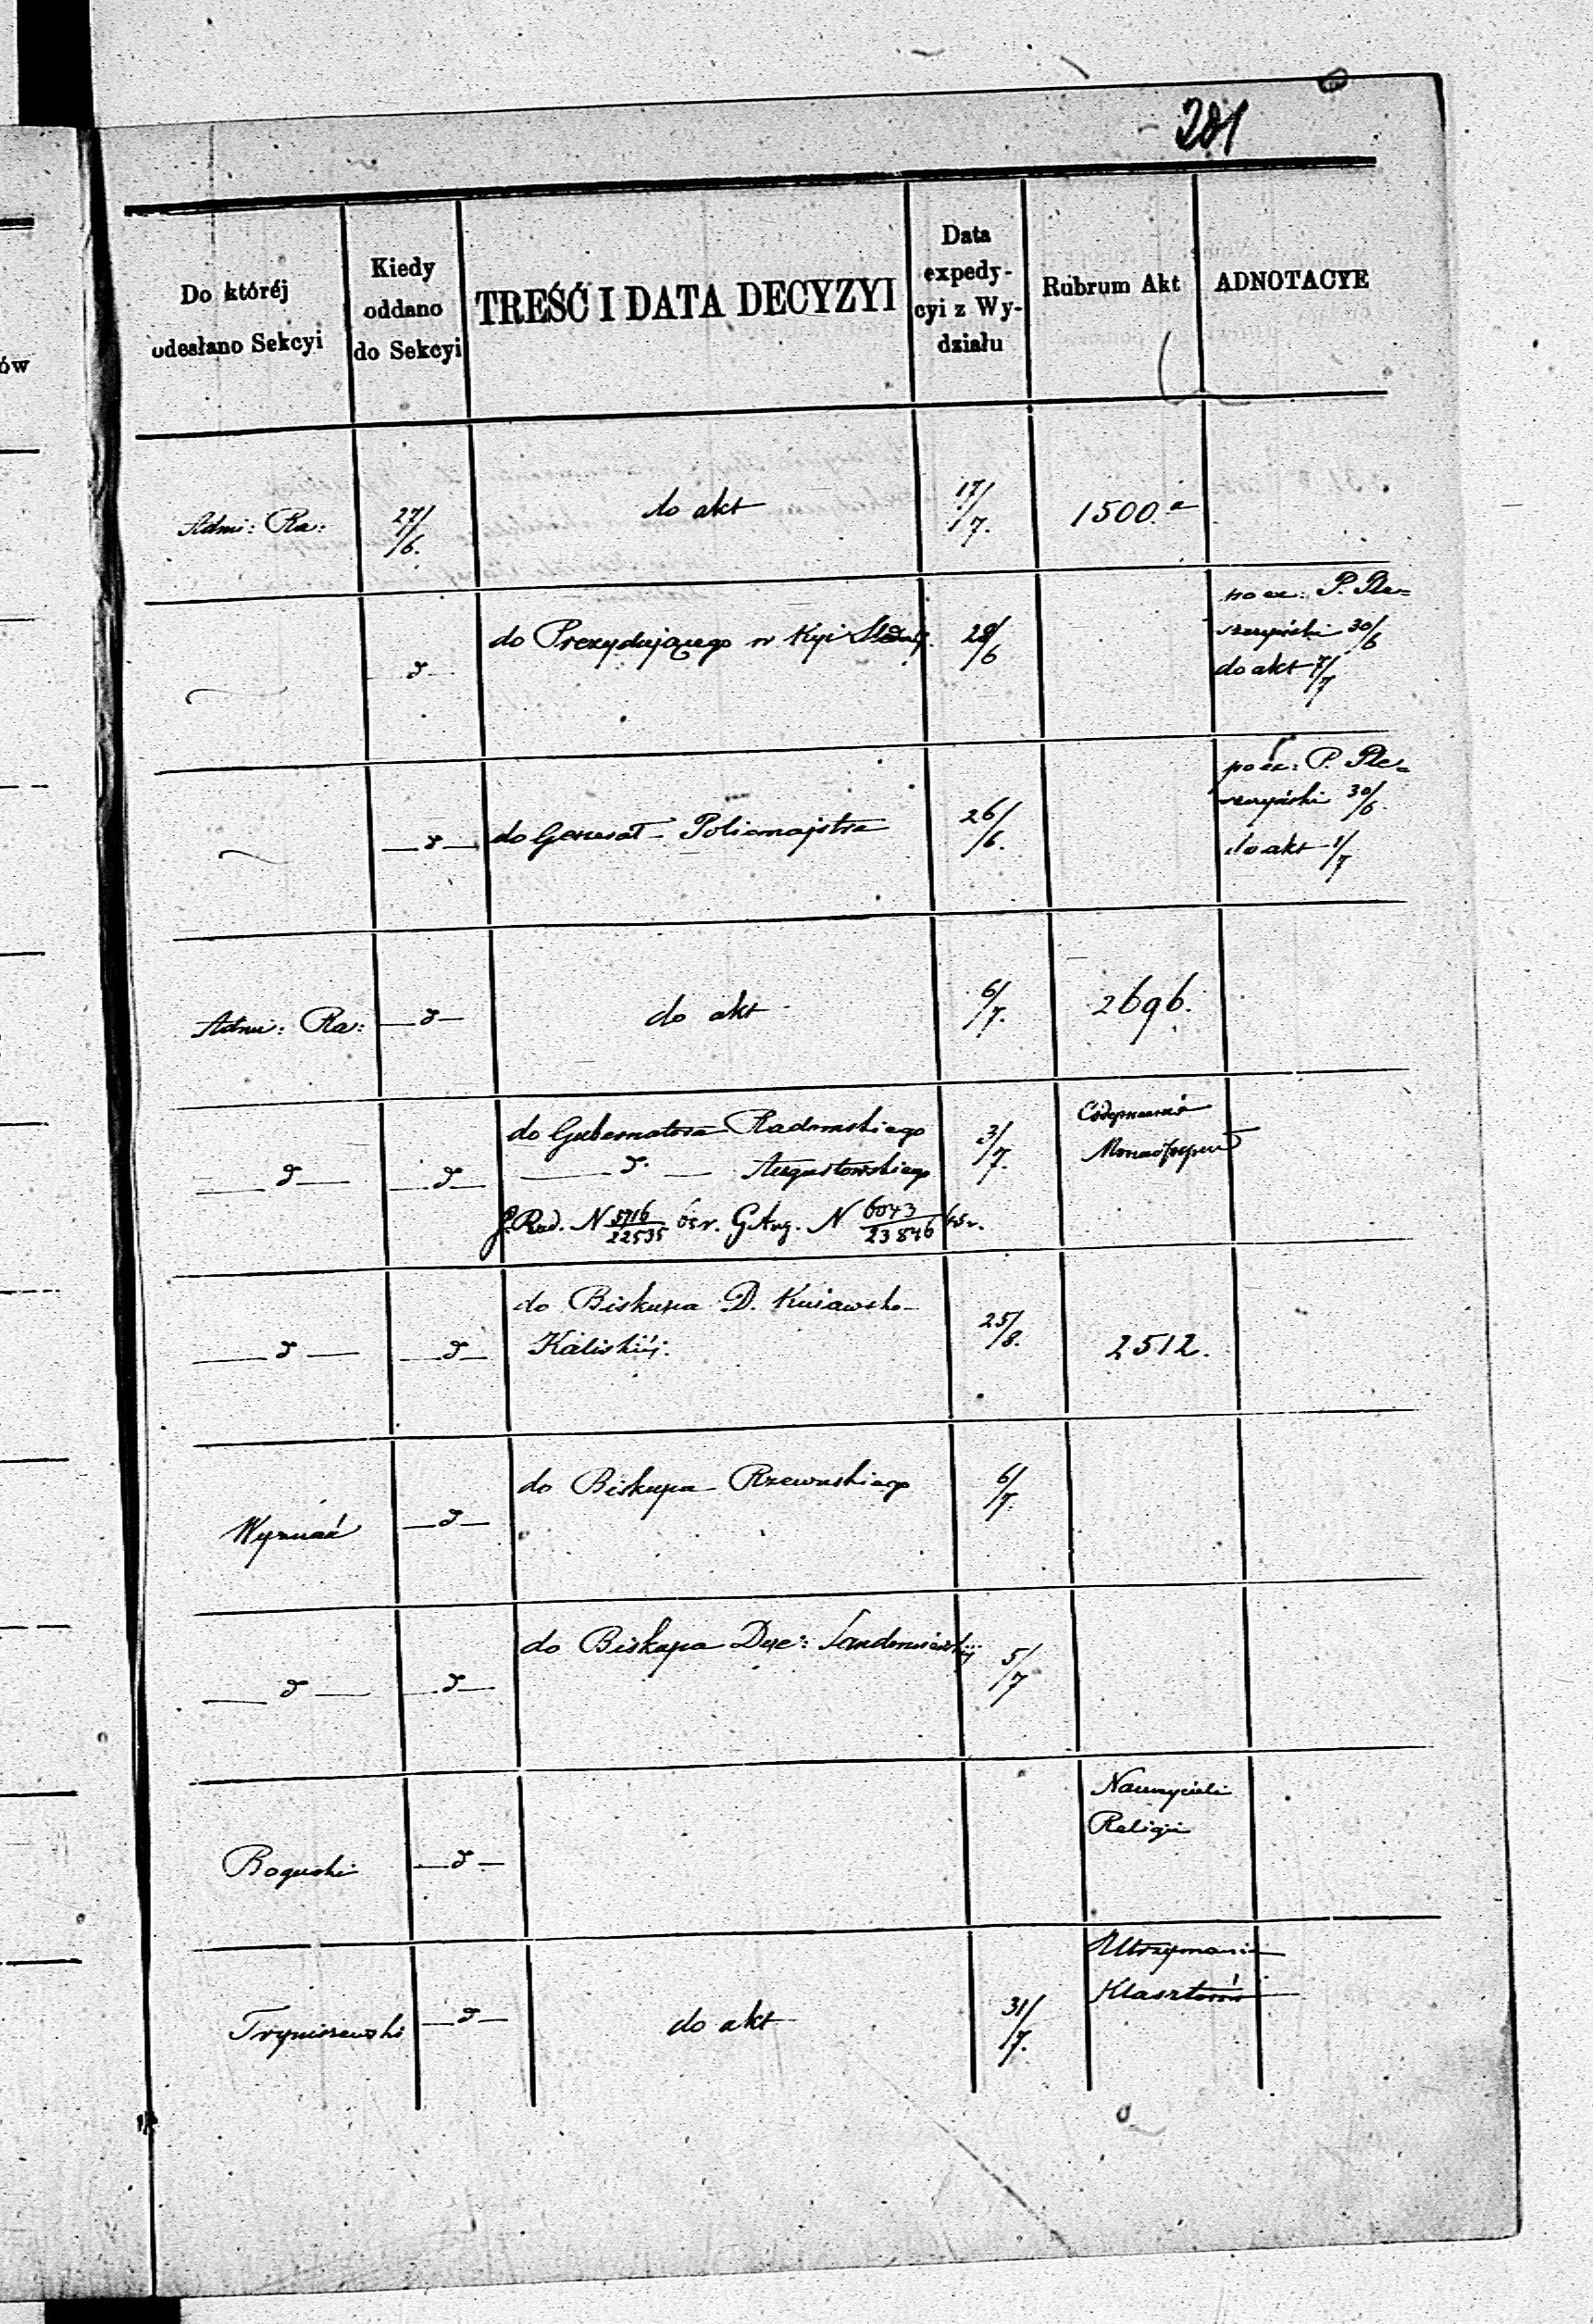 201
Do któréj
odesłano Sekcyi
Kiedy
oddano
do Sekcyi
TREŚĆ I DATA DECYZYI
Data
expedy-
cyi z Wy-
działu
Rubrum Akt
ADNOTACYE
ów
Admi: Ra: 27/6. do akt 17/7. 1500.a
d do Prezydującego w Kyi 28/6
po ex: P. Ple=
szczyński 30/6
do akt 7/7
d do Generał Policmajstra 26/6.
po ex: P. Ple=
szczyński 30/6
do akt 1/7
Admi: Ra: d do akt 6/7. 2696.
d d do Gubernatora Radomskiego 3/7.
d. Augustowskiego
G. Rad. N 5716/22535 G Aug. N 6043/23846
d d do Biskupa D. Kujawsko-
Kaliskiéj. 25/8. 2512.
d do Biskupa Rzewuskiego 6/7.
d d do Biskupa Dyec: Sandomierskiéj 5/7
Boguski d Nauczyciele
Religii
Tryniszewski d do akt 31/7. Utrzymanie
Klasztorów